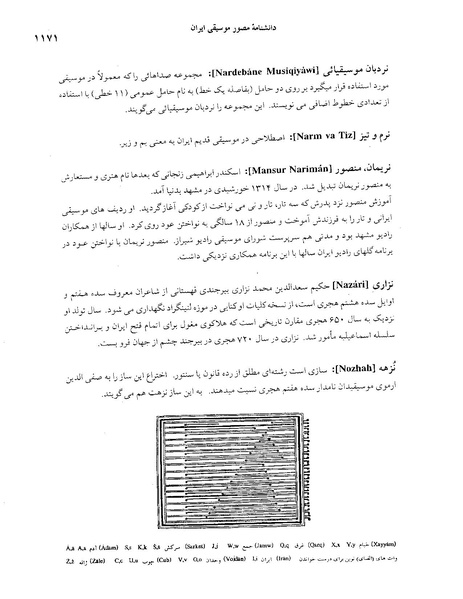 دانشنامهٔ مصور موسیقی ایران
۱۱۷۱
نردبان موسیقیائی [Nardebâne Musiqiyâwi]: مجموعه صداهائی را که معمولاً در موسیقی
مورد استفاده قرار میگیرد بر روی دو حامل (بفاصله یک خط) به نام حامل عمومی (۱۱ خطی) با استفاده
از تعدادی خطوط اضافی می نویسند. این مجموعه را نردبان موسیقیائی می‌گویند.
نرم و تیز [Narm va Tiz]: اصطلاحی در موسیقی قدیم ایران به معنی بم و زیر.
نریمان، منصور [Mansur Narimân]: اسکندر ابراهیمی زنجانی که بعدها نام هنری و مستعارش
به منصور نریمان تبدیل شد. در سال ۱۳۱۴ خورشیدی در مشهد بدنیا آمد.
آموزش منصور نزد پدرش که سه تار، تار و نی می نواخت از کودکی آغاز گردید. او ردیف های موسیقی
ایرانی و تار را به فرزندش آموخت و منصور از ۱۸ سالگی به نواختن عود روی کرد. او سالها از همکاران
رادیو مشهد بود و مدتی هم سرپرست شورای موسیقی رادیو شیراز. منصور نریمان با نواختن عود در
برنامه گلهای رادیو ایران سالها با این برنامه همکاری نزدیکی داشت.
نزاری [Nazâri] حکیم سعدالدین محمد نزاری بیرجندی قهستانی از شاعران معروف سده هفتم و
اوایل سده هشتم هجری است، از نسخه کلیات او کتابی در موزه لنینگراد نگهداری می شود. سال تولد او
نزدیک به سال ۶۵۰ هجری مقارن تاریخی است که هلاکوی مغول برای اتمام فتح ایران و برانداختن
سلسله اسماعیلیه مأمور شد. نزاری در سال ۷۲۰ هجری در بیرجند چشم از جهان فرو بست.
نُزهه [Nozhah]: سازی است رشته‌ای مطلق از رده قانون یا سنتور. اختراع این ساز را به صفی الدین
ارموی موسیقیدان نامدار سده هفتم هجری نسبت میدهند. به این ساز نزهت هم می گویند.